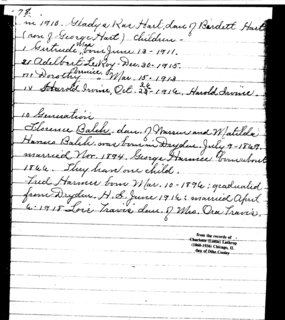 m 1910. Gladys Rae Hart, dau. of Burdett Hart
(son of George Hart) Children -
I Gertrude Mae born June 13-1911.
II Adelbert LeRoy Dec. 30-1915.
III Dorothy " Mar. 15-1913
IV Harold Irvine, Oct. 1916. Harold Irvine.
10 Generation
Florence Balch, dau. of Warren and Matilda
Balch was born in Dryden July 9-1869.
married Nov. 1894. George born about
1866. They have one child.
Fred born Mar. 10-1896; graduated
from Dryden H. S. June 1916; married April
6-1918 Lois Travis dau. of Mrs. Ora Travis.
from the records of
Charlotte (Lottie) Lathrop
Chicago, Il.
dau of Dike Conley